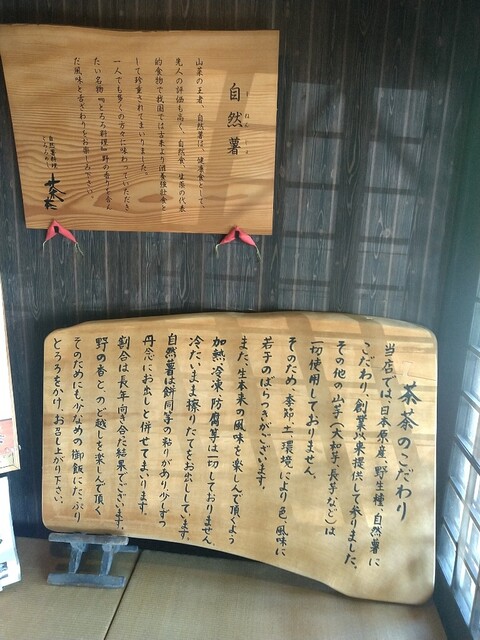 自然薯
じねんじょ
山菜の王者、自然薯は、健康食として、
先人の評価も高く、自然食、生薬の代表
的食物で我国では古来より滋養強壮食と
して珍重されてまいりました。
一人でも多くの方々に味わっていただき
たい名物『とろろ料理』野の香りを含ん
だ風味と古さわうをお楽しみ下さい。
自然薯料理
茶茶
茶茶のこだわり
当店では、日本原産、野生種、自然薯に
こだわり、創業以来提供して参りました。
その他の山芋（大和芋、長芋など）は
一切使用しておりません。
そのため、季節、土、環境により色、風味に
若干のばらつきがございます。
また、生本来の風味を楽しんで頂くよう
加熱、冷凍、防腐等は一切しておりません。
冷たいまま擦りたてをお出ししています。
自然薯は餅同等の粘りがあり、少しずつ
丹念にお出しと併せてまいります。
割合は長年向き合た結果でございます。
野の香と、のど越しを楽しんで頂く
そのためにも、少なめの御飯にたっぷり
とろろをかけ、お召し上がり下さい。